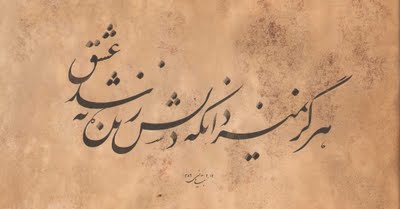 هرگز نمیرد آنکه دلش زنده شد به عشق